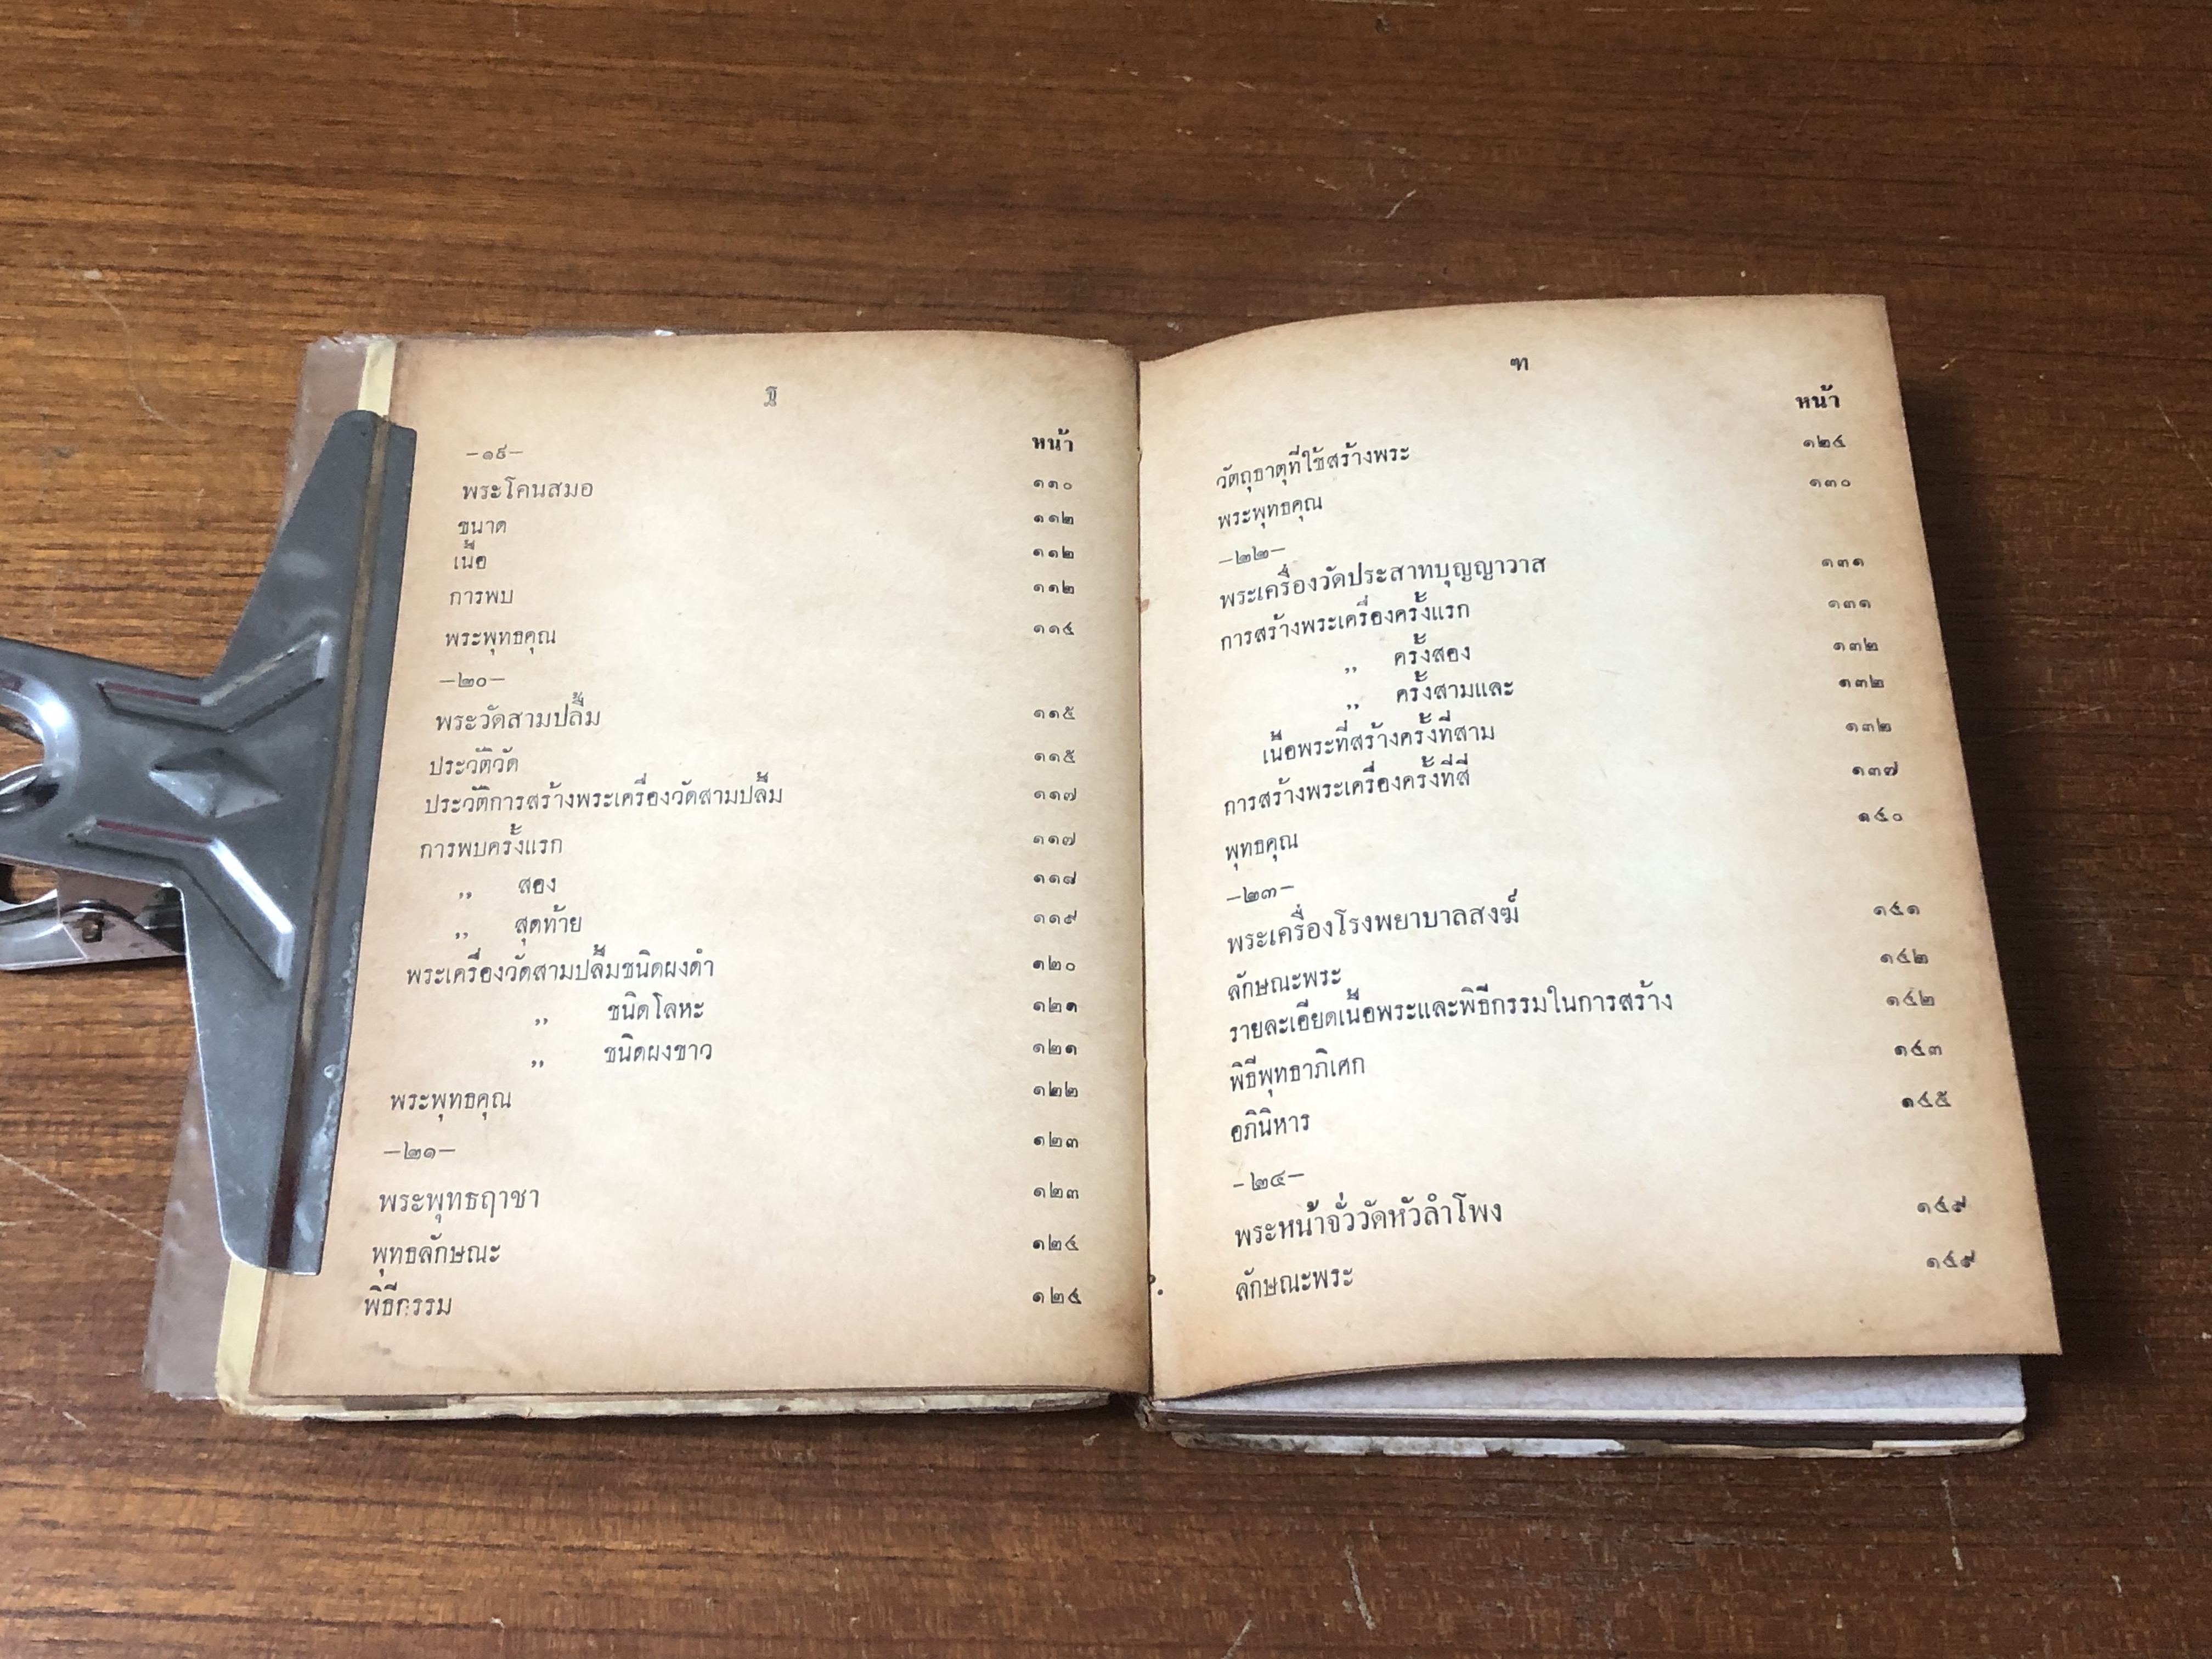 ฐ
หน้า
—๑๙—
พระโคนสมอ ๑๑๐
ขนาด ๑๑๒
เนื้อ ๑๑๒
การพบ ๑๑๒
พระพุทธคุณ ๑๑๔
—๒๐—
พระวัดสามปลื้ม ๑๑๕
ประวัติวัด ๑๑๕
ประวัติการสร้างพระเครื่องวัดสามปลื้ม ๑๑๗
การพบครั้งแรก ๑๑๗
,, สอง ๑๑๘
,, สุดท้าย ๑๑๙
พระเครื่องวัดสามปลื้มชนิดผงดำ ๑๒๐
,, ชนิดโลหะ ๑๒๑
,, ชนิดผงขาว ๑๒๑
พระพุทธคุณ ๑๒๒
—๒๑— ๑๒๓
พระพุทธฤาชา ๑๒๓
พุทธลักษณะ ๑๒๔
พิธีกรรม ๑๒๔
ฑ
หน้า
วัตถุธาตุที่ใช้สร้างพระ ๑๒๔
พระพุทธคุณ ๑๓๐
—๒๒—
พระเครื่องวัดประสาทบุญญาวาส ๑๓๑
การสร้างพระเครื่องครั้งแรก ๑๓๑
,, ครั้งสอง ๑๓๒
,, ครั้งสามและ ๑๓๒
เนื้อพระที่สร้างครั้งที่สาม ๑๓๒
การสร้างพระเครื่องครั้งที่สี่ ๑๓๗
พุทธคุณ ๑๔๐
—๒๓—
พระเครื่องโรงพยาบาลสงฆ์ ๑๔๑
ลักษณะพระ ๑๔๒
รายละเอียดเนื้อพระและพิธีกรรมในการสร้าง ๑๔๒
พิธีพุทธาภิเศก ๑๔๓
อภินิหาร ๑๔๕
—๒๔—
พระหน้าจั่ววัดหัวลำโพง ๑๔๙
ลักษณะพระ ๑๔๙